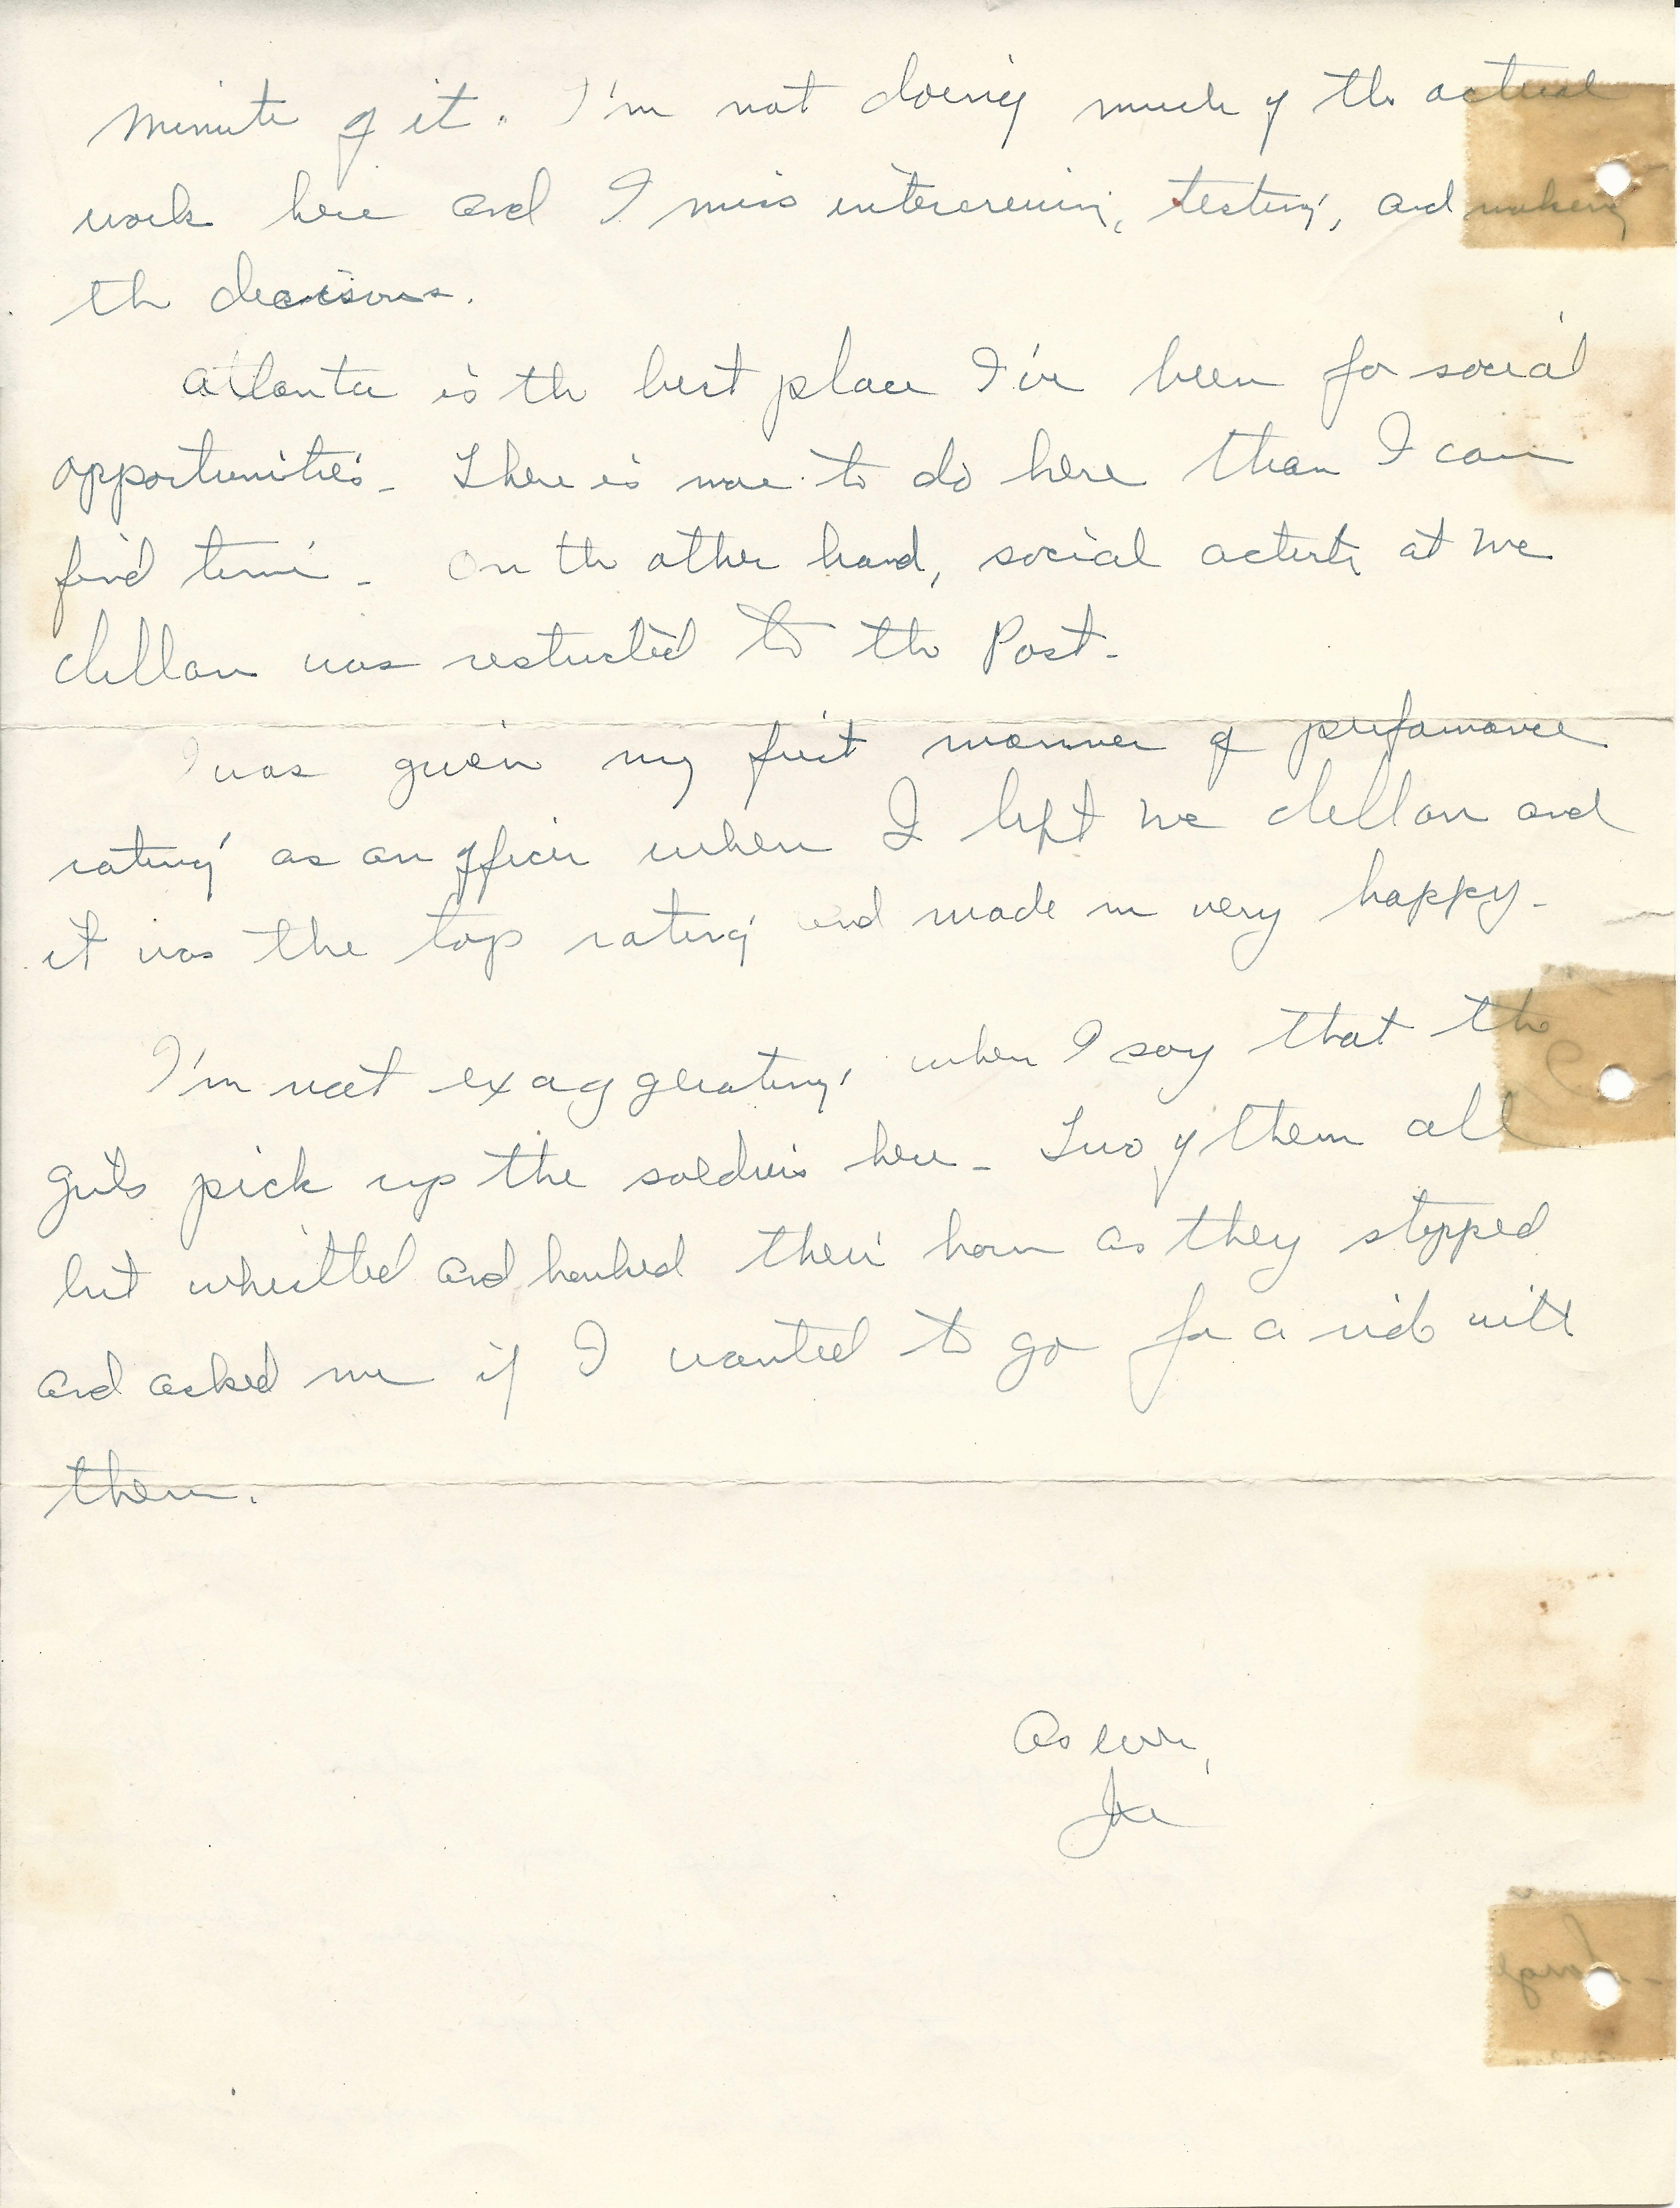 minute of it. I'm not doing much of the actual
work here and I miss interviewing, testing, and making
the decisions.
Atlanta is the best place I've been for social
opportunities - There is more to do here than I can
find time - On the other hand, social activity at Mc
Clellan was restricted to the Post -
I was given my first manner of performance
rating as an officer when I left Mc Clellan and
it was the top rating and made me very happy -
I'm not exaggerating, when I say that the
girls pick up the soldiers here - Two of them all
but whistled and honked their horn as they stopped
and asked me if I wanted to go for a ride with
them.
As ever,
Joe